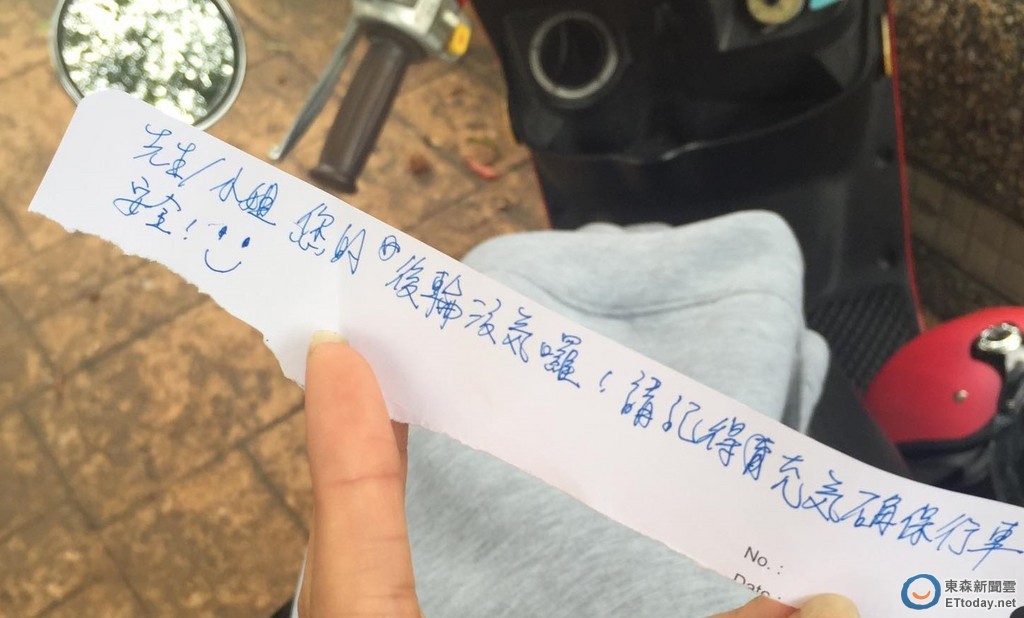 先生/小姐 您的後輪沒氣囉!請記得充氣確保行車
安全!
No.:
Date:
東森新聞雲
ETtoday.net